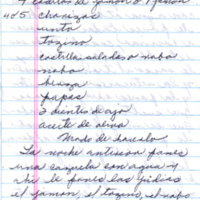 4 cuartos de jamón o pernil
4 o 5 chorizos
unto
tozino
costillas saladas o rabo
nabo
berza
papas
2 dientes de ajo
aceite de oliva
Modo de hacerlo
La noche anterior pones
una cazuela con agua y
ahi le pones las judias
el jamon, el tozino, el rabo